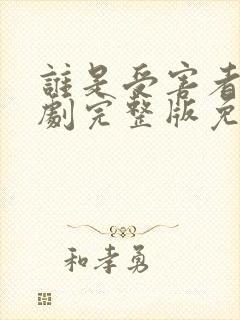 誰是受害者
劇完整版免
和孝勇